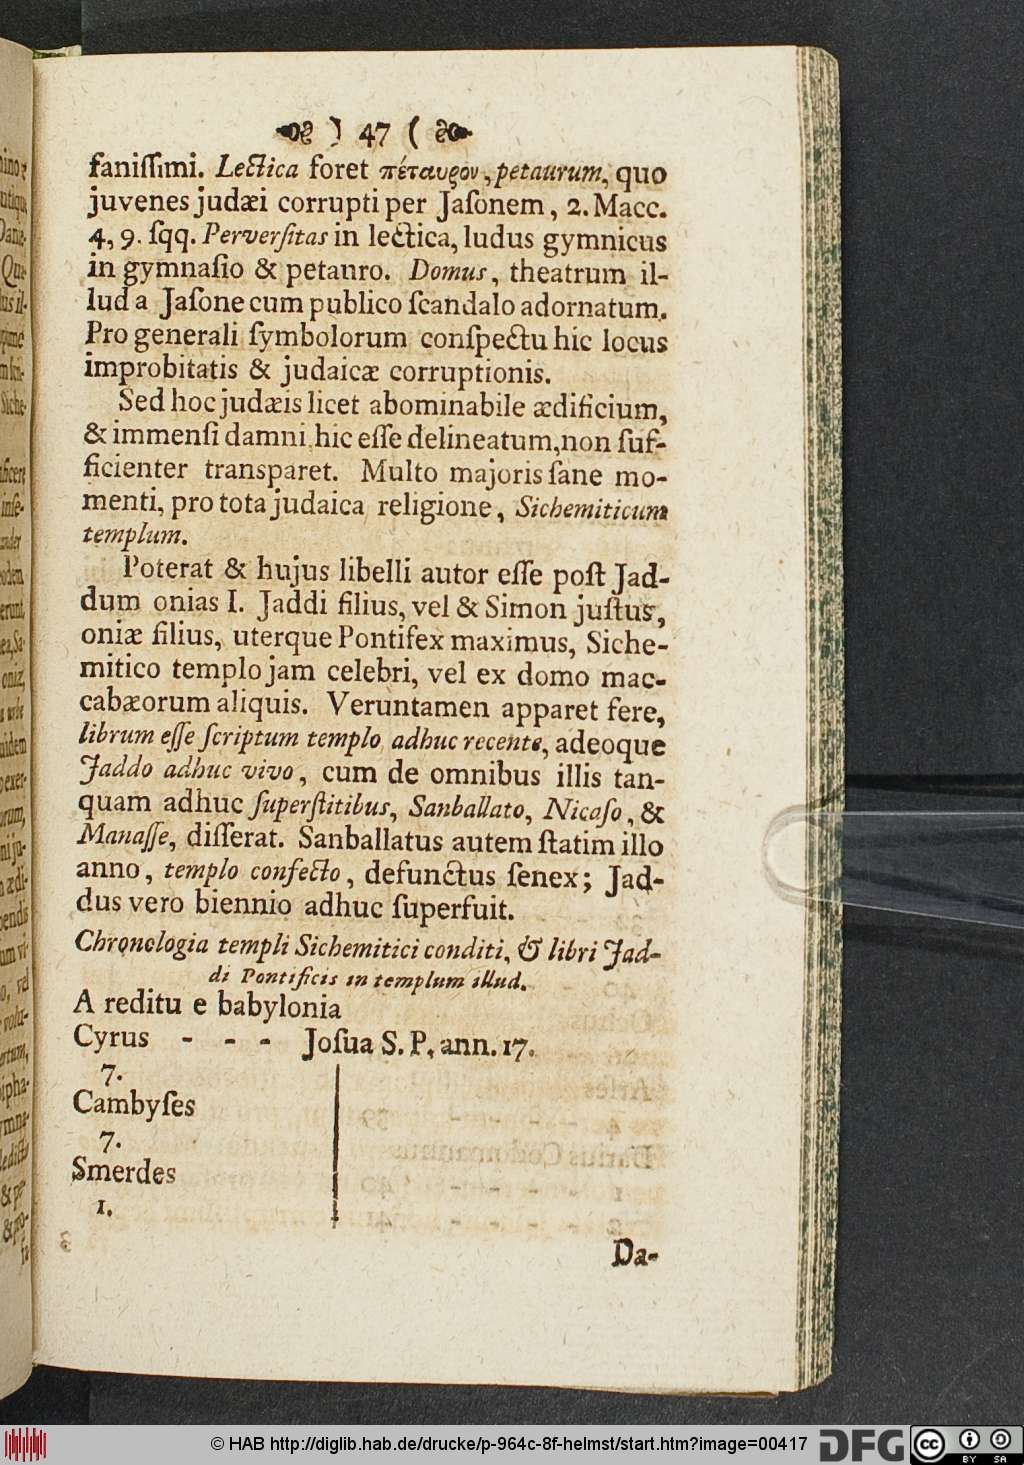 ) 47 (
faniſſimi. Lectica foret πέταυρον, petaurum, quo
juvenes judæi corrupti per Jaſonem, 2. Macc.
4, 9. ſqq. Perverſitas in lectica, ludus gymnicus
in gymnaſio & petauro. Domus, theatrum il-
lud a Jaſone cum publico ſcandalo adornatum.
Pro generali ſymbolorum conſpectu hic locus
improbitatis & judaicæ corruptionis.
Sed hoc judæis licet abominabile ædificium,
& immenſi damni hic eſſe delineatum, non ſuf-
ficienter transparet. Multo majoris ſane mo-
menti, pro tota judaica religione, Sichemiticum
templum.
Poterat & hujus libelli autor eſſe poſt Jad-
dum onias I. Jaddi filius, vel & Simon juſtus,
oniæ filius, uterque Pontifex maximus, Siche-
mitico templo jam celebri, vel ex domo mac-
cabæorum aliquis. Veruntamen apparet fere,
librum eſſe ſcriptum templo adhuc recente, adeoque
Jaddo adhuc vivo, cum de omnibus illis tan-
quam adhuc ſuperſtitibus, Sanballato, Nicaſo, &
Manaſſe, diſſerat. Sanballatus autem ſtatim illo
anno, templo confecto, defunctus ſenex; Jad-
dus vero biennio adhuc ſuperfuit.
Chronologia templi Sichemitici conditi, & libri Jad-
di Pontificis in templum illud.
A reditu e babylonia
Cyrus - - - Joſua S. P. ann. 17.
7.
Cambyſes
7.
Smerdes
1.
Da-
© HAB http://diglib.hab.de/drucke/p-964c-8f-helmst/start.htm?image=00417 DFG cc BY SA